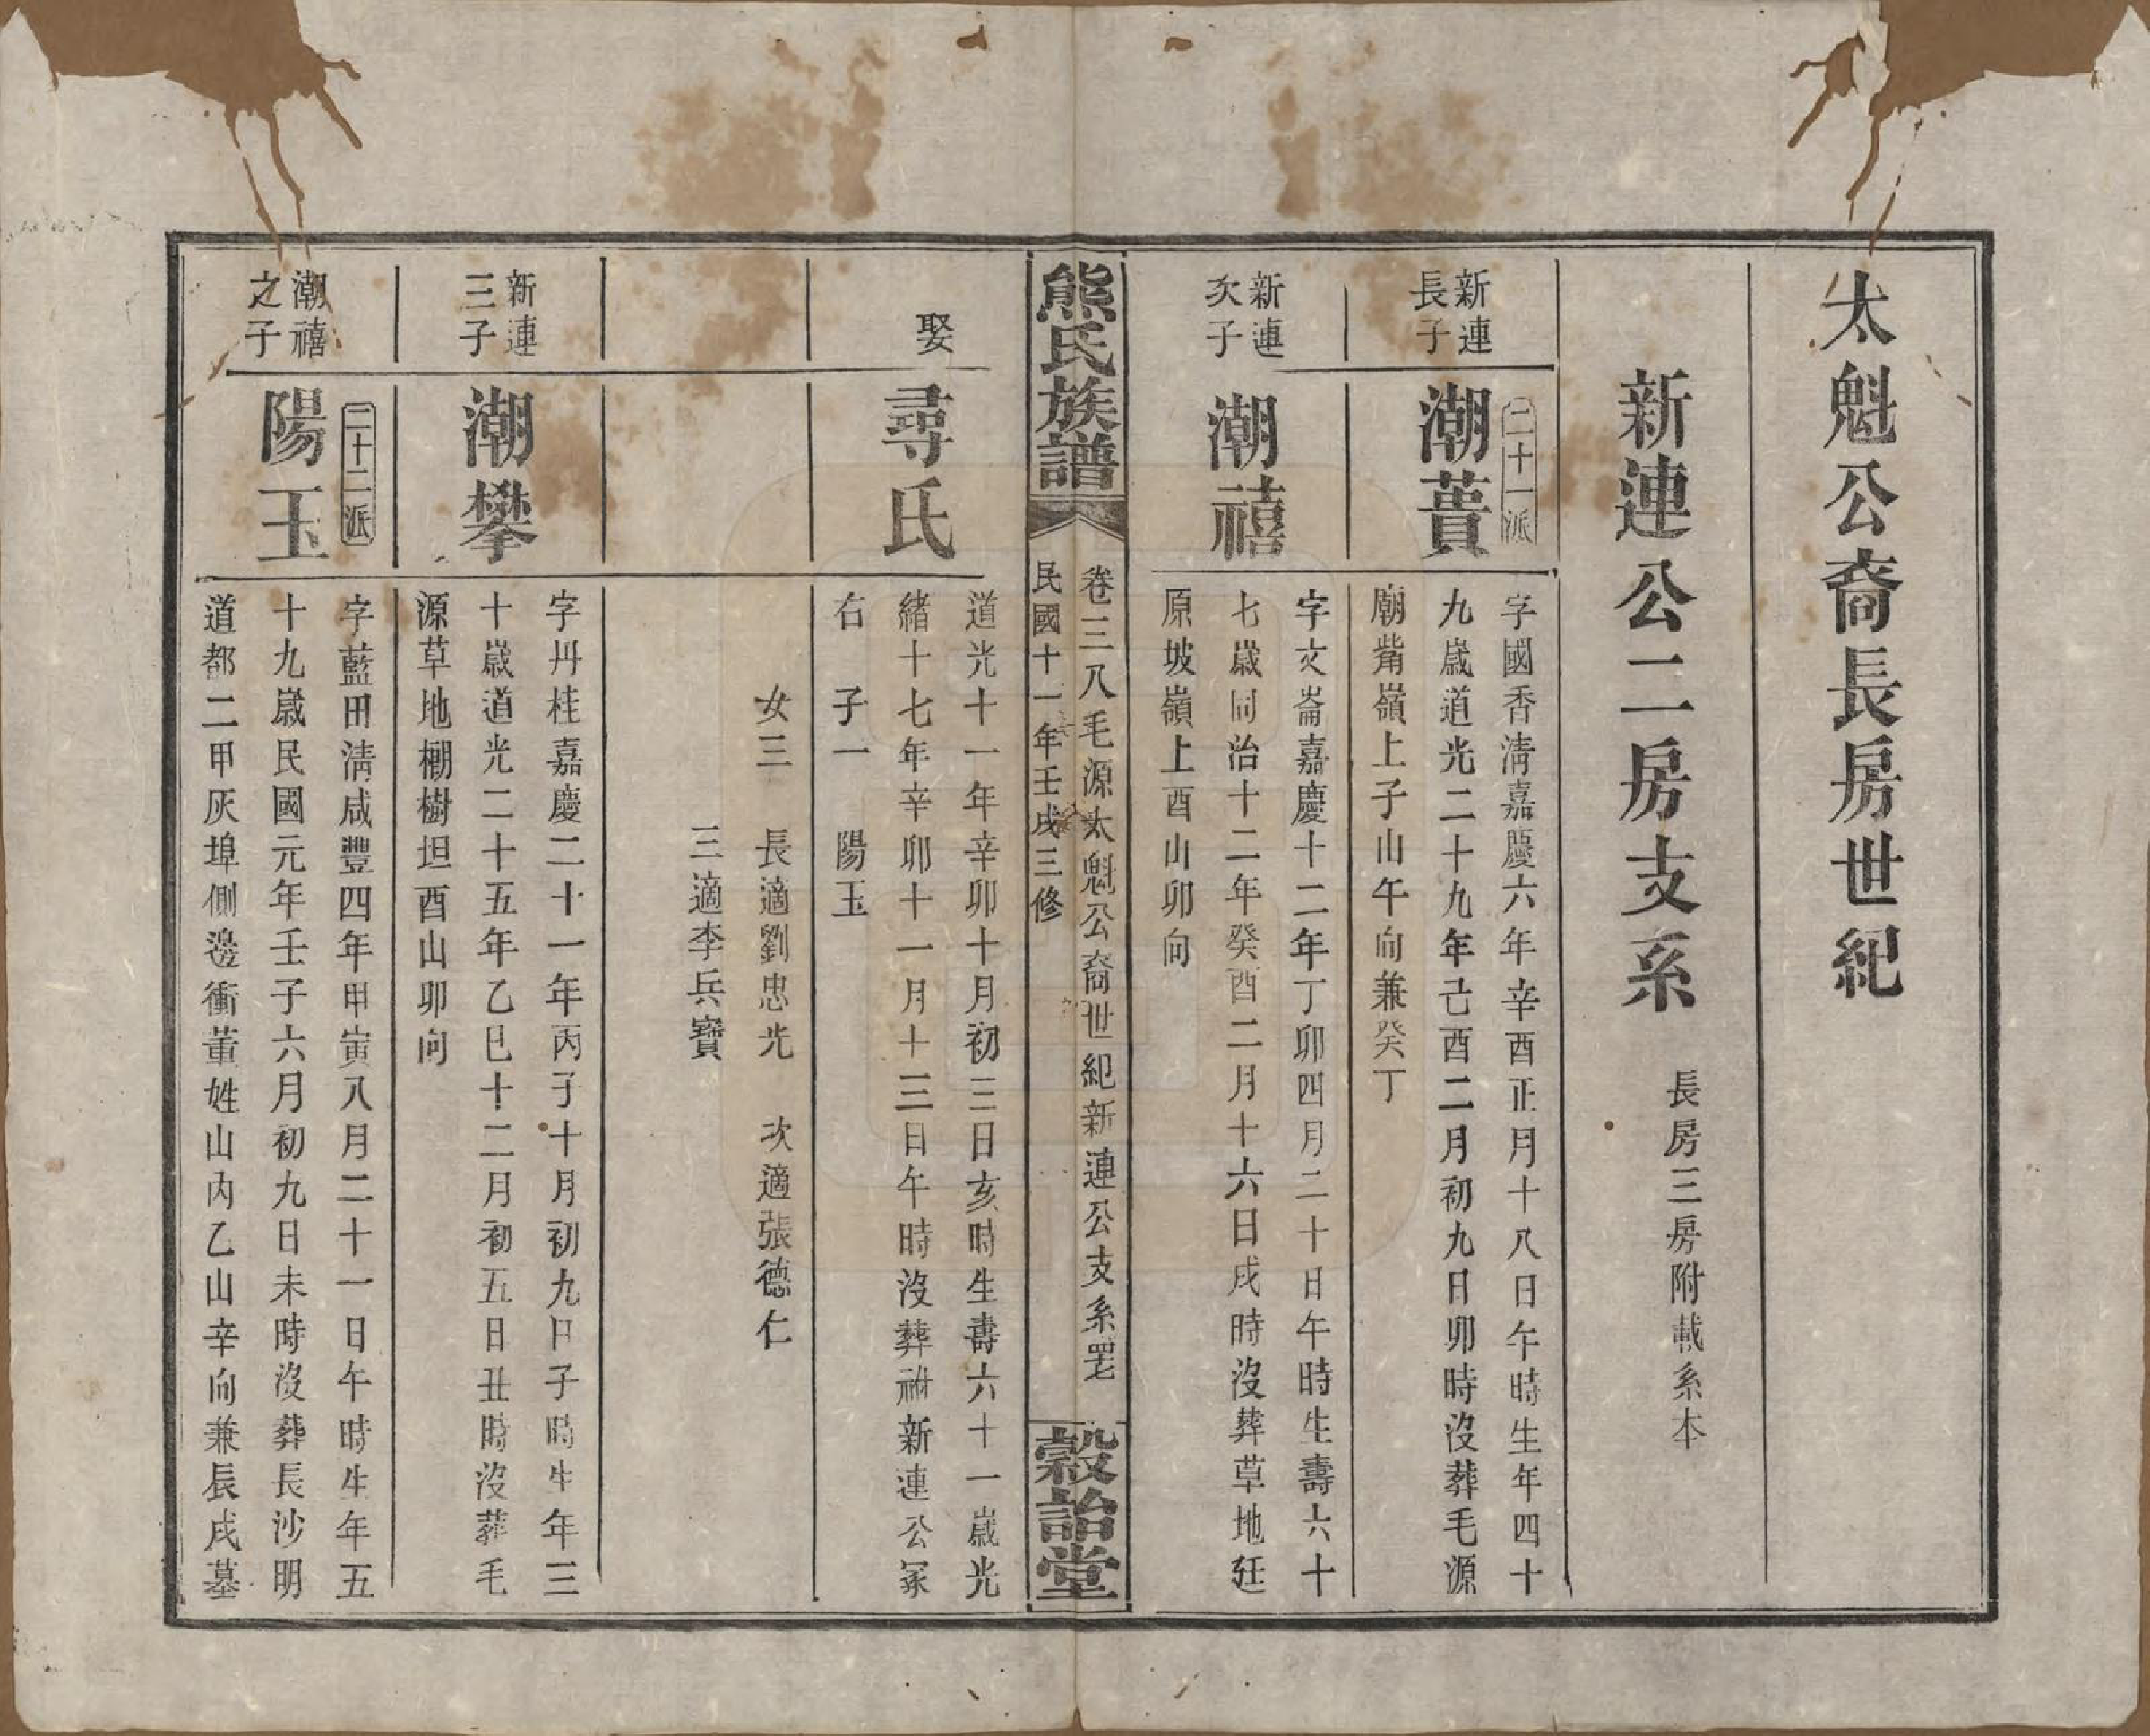 太魁公裔長房世紀
新連公二房支系
長房三房附載系本
新連
長子
二十一派
潮蕡
字國香淸嘉慶六年辛酉正月十八日午時生年四十
九歲道光二十九年己酉二月初九日卯時沒葬毛源
廟觜嶺上子山午向兼癸丁
新連
次子
潮禧
字文崙嘉慶十二年丁卯四月二十日午時生壽六十
七歲同治十二年癸酉二月十六日戌時沒葬草地廷
原坡嶺上酉山卯向
熊氏族譜
卷三八毛源太魁公裔世紀新連公支系
民國十一年壬戌三修
穀詒堂
娶
尋氏
道光十一年辛卯十月初三日亥時生壽六十一歲光
緒十七年辛卯十一月十三日午時沒葬祔新連公冢
右 子一 陽玉
女三 長適劉忠光 次適張德仁
三適李兵寶
新連
三子
潮攀
字丹桂嘉慶二十一年丙子十月初九日子時生年三
十歲道光二十五年乙巳十二月初五日丑時沒葬毛
源草地棚樹坦酉山卯向
潮禧
之子
二十二派
陽玉
字藍田淸咸豐四年甲寅八月二十一日午時生年五
十九歲民國元年壬子六月初九日未時沒葬長沙明
道都二甲灰埠側邊衝董姓山內乙山辛向兼辰戌墓